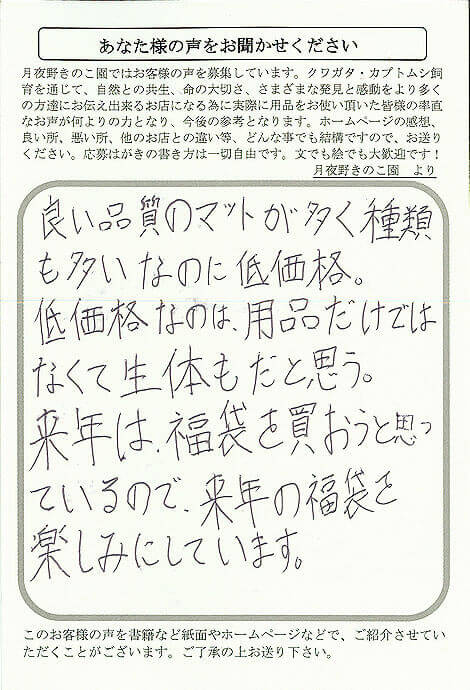 あなた様の声をお聞かせください
月夜野きのこ園ではお客様の声を募集しています。クワガタ・カブトムシ飼
育を通じて、自然との共生、命の大切さ、さまざまな発見と感動をより多く
の方達にお伝え出来るお店になる為に実際に用品をお使い頂いた皆様の率直
なお声が何よりの力となり、今後の参考となります。ホームページの感想、
良い所、悪い所、他のお店との違い等、どんな事でも結構ですので、お送り
ください。応募はがきの書き方は一切自由です。文でも絵でも大歓迎です！
月夜野きのこ園　より
良い品質のマットが多く種類
も多いなのに低価格。
低価格なのは、用品だけでは
なくて生体もだと思う。
来年は、福袋を買おうと思っ
ているので、来年の福袋を
楽しみにしています。
このお客様の声を書籍など紙面やホームページなどで、ご紹介させてい
ただくことがございます。ご了承の上お送り下さい。